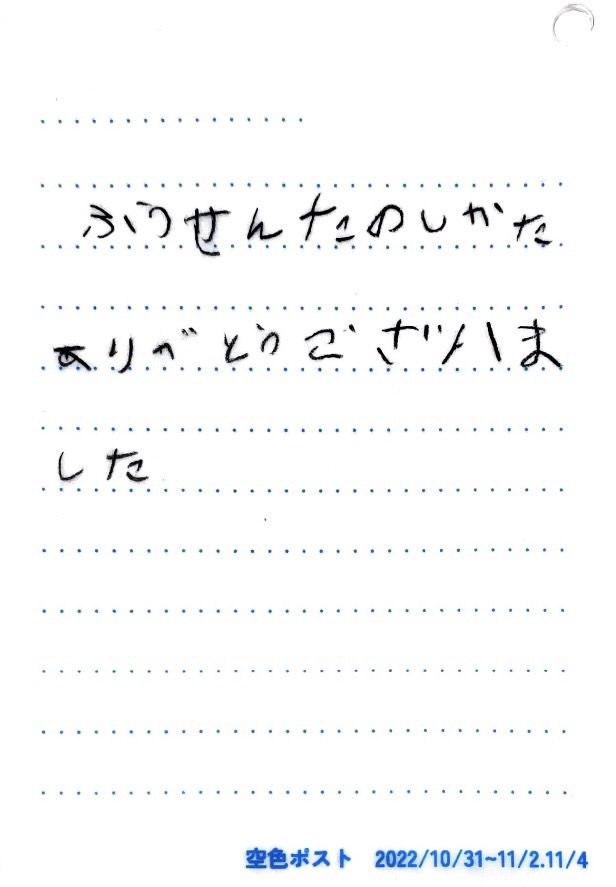 ふうせんたのしかた
ありがとうございま
した
空色ポスト 2022/10/31~11/2.11/4